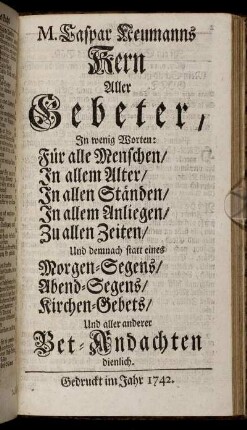 M. Caspar Neumanns
Kern
Aller
Gebeter,
In wenig Worten:
Für alle Menschen/
In allem Alter/
In allen Ständen/
In allem Anliegen/
Zu allen Zeiten/
Und demnach statt eines
Morgen-Segens/
Abend-Segens/
Kirchen-Gebets/
Und aller anderer
Bet-Andachten
dienlich.
Gedruckt im Jahr 1742.